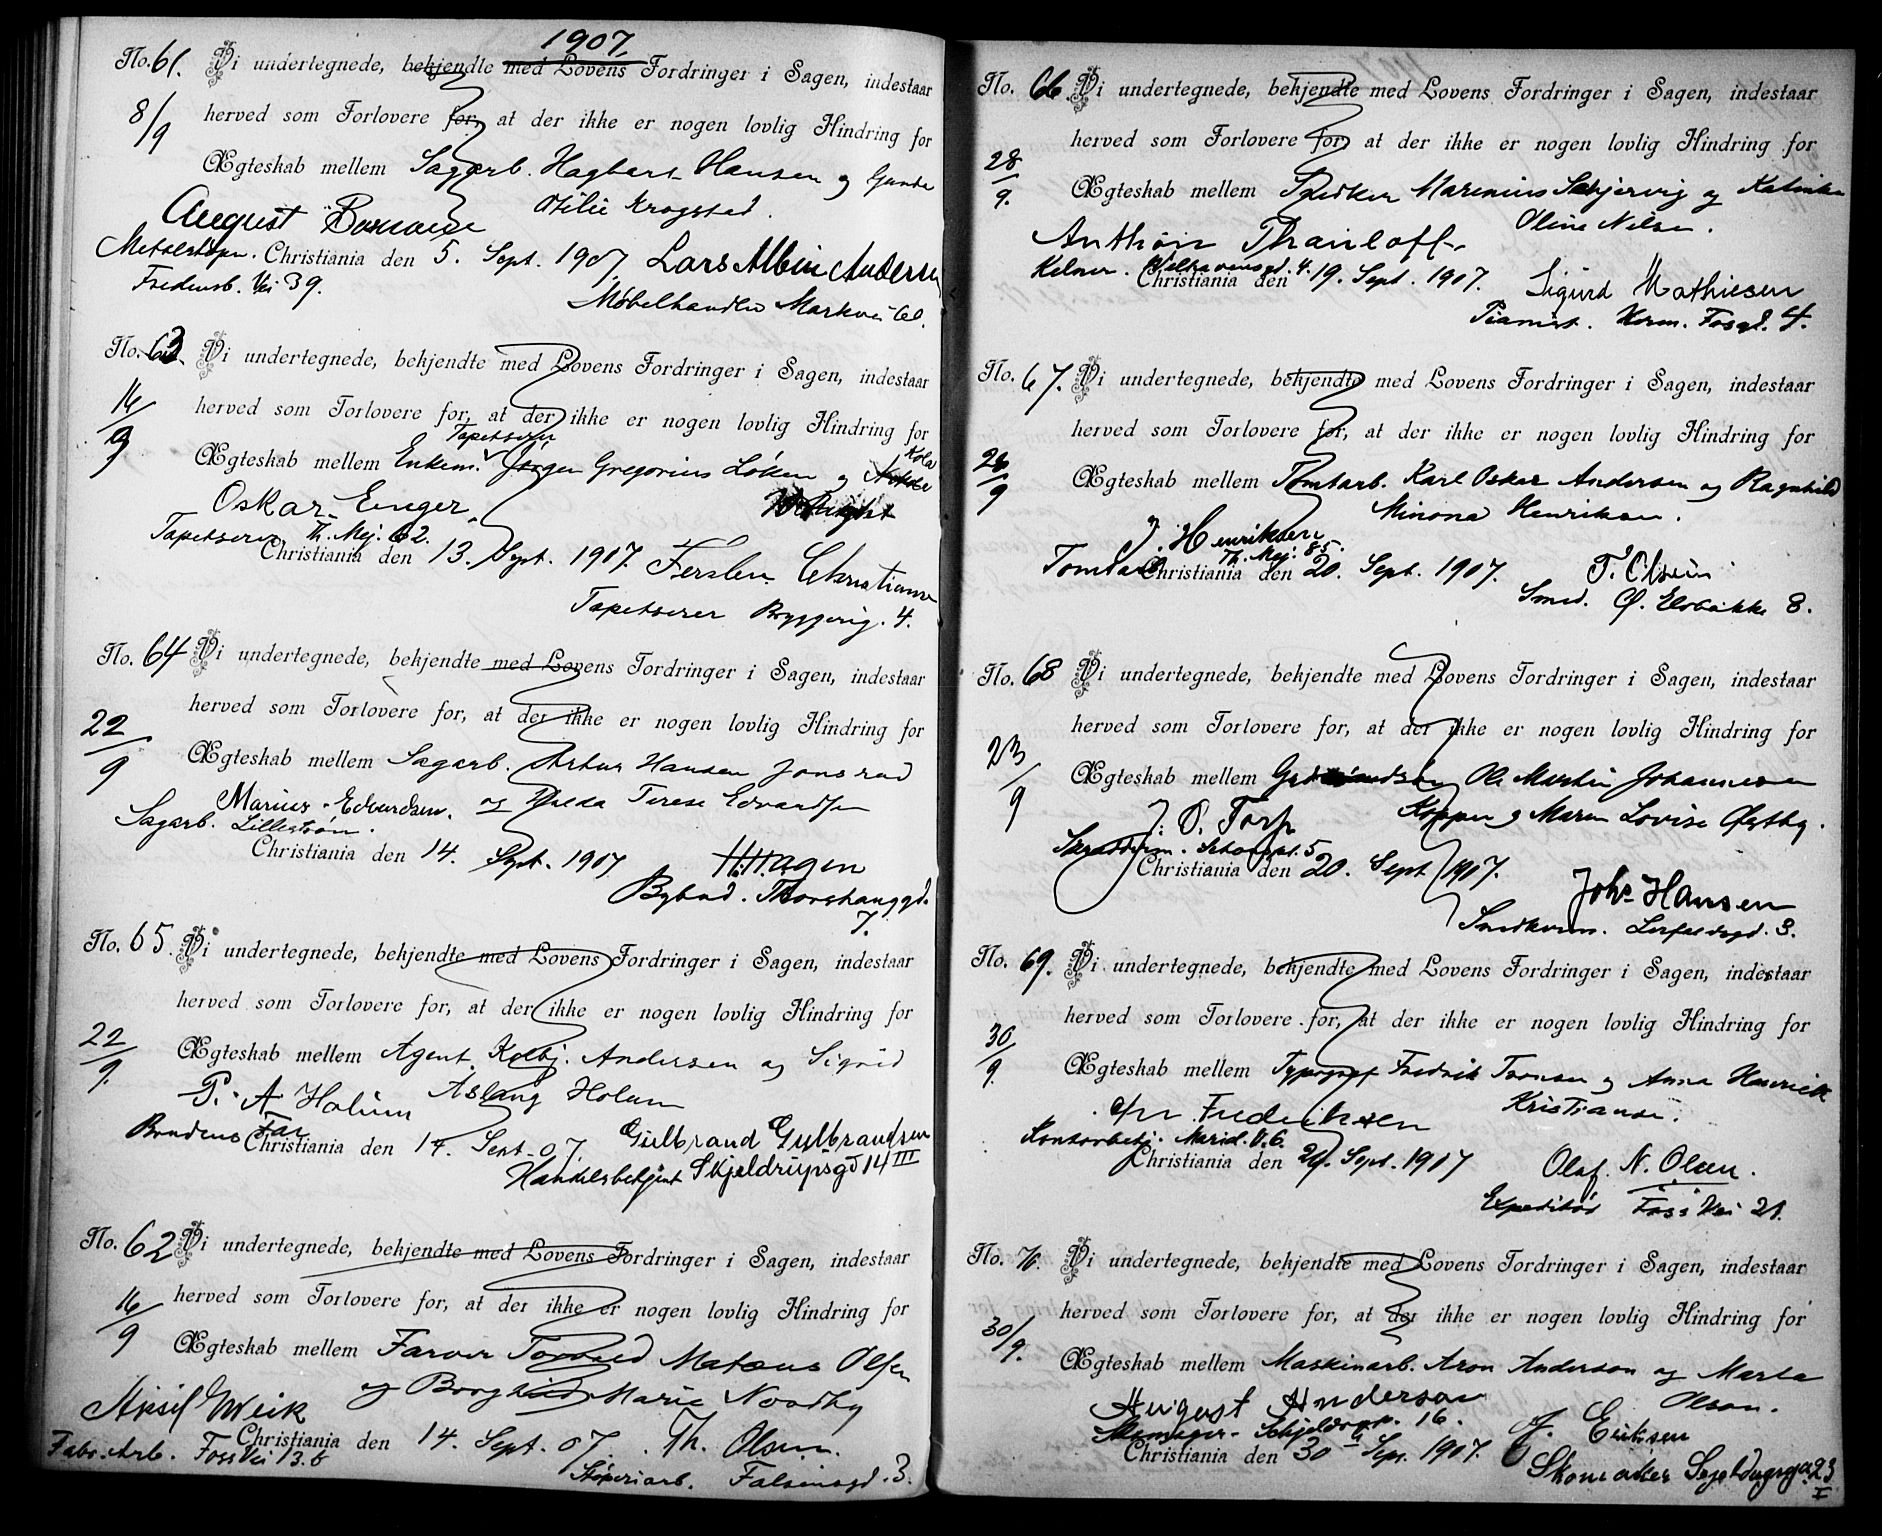 1907.
No. 61. Vi undertegnede, bekjendte med Lovens Fordringer i Sagen, indestaar
8/9 herved som Forlovere for, at der ikke er nogen lovlig Hindring for
Ægteskab mellem Sagarb. Hagbart Hansen og Gunda
Otilie Krogstad.
August
Christiania den 5. Sept. 1907. Lars Albin Andersen
Fredensb. Vei 39.
Møbelhandler Markvei 60.
No. 63. Vi undertegnede, bekjendte med Lovens Fordringer i Sagen, indestaar
16/9 herved som Forlovere for, at der ikke er nogen lovlig Hindring for
Tapetserer
Ægteskab mellem Enkem. Jørgen Gregorius Løken og
Oskar Enger.
Tapetserer Th. Mej. 62.
Christiania den 13. Sept. 1907.
Tapetserer Bryggerig. 4.
No. 64 Vi undertegnede, bekjendte med Lovens Fordringer i Sagen, indestaar
22/9 herved som Forlovere for, at der ikke er nogen lovlig Hindring for
Ægteskab mellem Sagarb. Artur Hansen Jonsrud
og Hulda Terese Edvardsen
Marius Edvardsen.
Sagarb. Lillestrøm.
Christiania den 14. Sept. 1907 H. Hagen
Bybud. Thorshauggd.
7.
No. 65. Vi undertegnede, bekjendte med Lovens Fordringer i Sagen, indestaar
22/9. herved som Forlovere for, at der ikke er nogen lovlig Hindring for
Ægteskab mellem Agent Kolbj. Andersen og Sigrid
Aslaug Holum
P. A Holum
Brudens Far
Christiania den 14. Sept. 07. Gulbrand Gulbrandsen
Handelsbetjent Skjeldrupsgd 14 III
No. 62 Vi undertegnede, bekjendte med Lovens Fordringer i Sagen, indestaar
16/9 herved som Forlovere for, at der ikke er nogen lovlig Hindring for
Ægteskab mellem Farver Torvald Matæus Olsen
og Borghild Marie Nordby
Fabr. Arb. Foss Vei 13.b
Christiania den 14. Sept. 07. Th. Olsen.
Støperiarb. Falsensgd. 3.
No. 66 Vi undertegnede, bekjendte med Lovens Fordringer i Sagen, indestaar
28/9. herved som Forlovere for, at der ikke er nogen lovlig Hindring for
Ægteskab mellem Snedker Marenius Schjervig og Katinka
Oline Nilsen.
Anthon
Kelner. Welhavensgd. 4.
Christiania den 19. Sept. 1907. Sigurd Mathiesen
Pianist. Herm. Fosgd. 4.
No. 67. Vi undertegnede, bekjendte med Lovens Fordringer i Sagen, indestaar
28/9 herved som Forlovere for, at der ikke er nogen lovlig Hindring for
Ægteskab mellem Tomtarb. Karl Oskar Andersen og Ragnhild
Minona Henriksen.
J. Henriksen
Tomtarb. Th. Mej. 85.
Christiania den 20. Sept. 1907. T. Olsen
Smed. Ø. Elvbakke 8.
No. 68 Vi undertegnede, bekjendte med Lovens Fordringer i Sagen, indestaar
23/9 herved som Forlovere for, at der ikke er nogen lovlig Hindring for
Ægteskab mellem Ole Martin Johannesen
Koppen og Maren Lovise Østby.
J. O. Torp
Christiania den 20. Sept 1907. Johs Hansen
Snedkersv. Lerfaldsgd. 3.
No. 69. Vi undertegnede, bekjendte med Lovens Fordringer i Sagen, indestaar
30/9. herved som Forlovere for, at der ikke er nogen lovlig Hindring for
Ægteskab mellem Typograf Fredrik Tornsen og Anna Henrick
Kristiansen.
Frederiksen
Kontorbetj. Marid. V. 6.
Christiania den 29. Sept. 1907 Olaf N. Olsen.
Expeditør Foss Vei 21.
No. 70. Vi undertegnede, bekjendte med Lovens Fordringer i Sagen, indestaar
30/9. herved som Forlovere for, at der ikke er nogen lovlig Hindring for
Ægteskab mellem Maskinarb. Aron Anderson og Marta
Olsson.
August Anderson
Schjeldrup. 16.
Christiania den 30 Sep. 1907. J. Eriksen
Skomaker 23
I